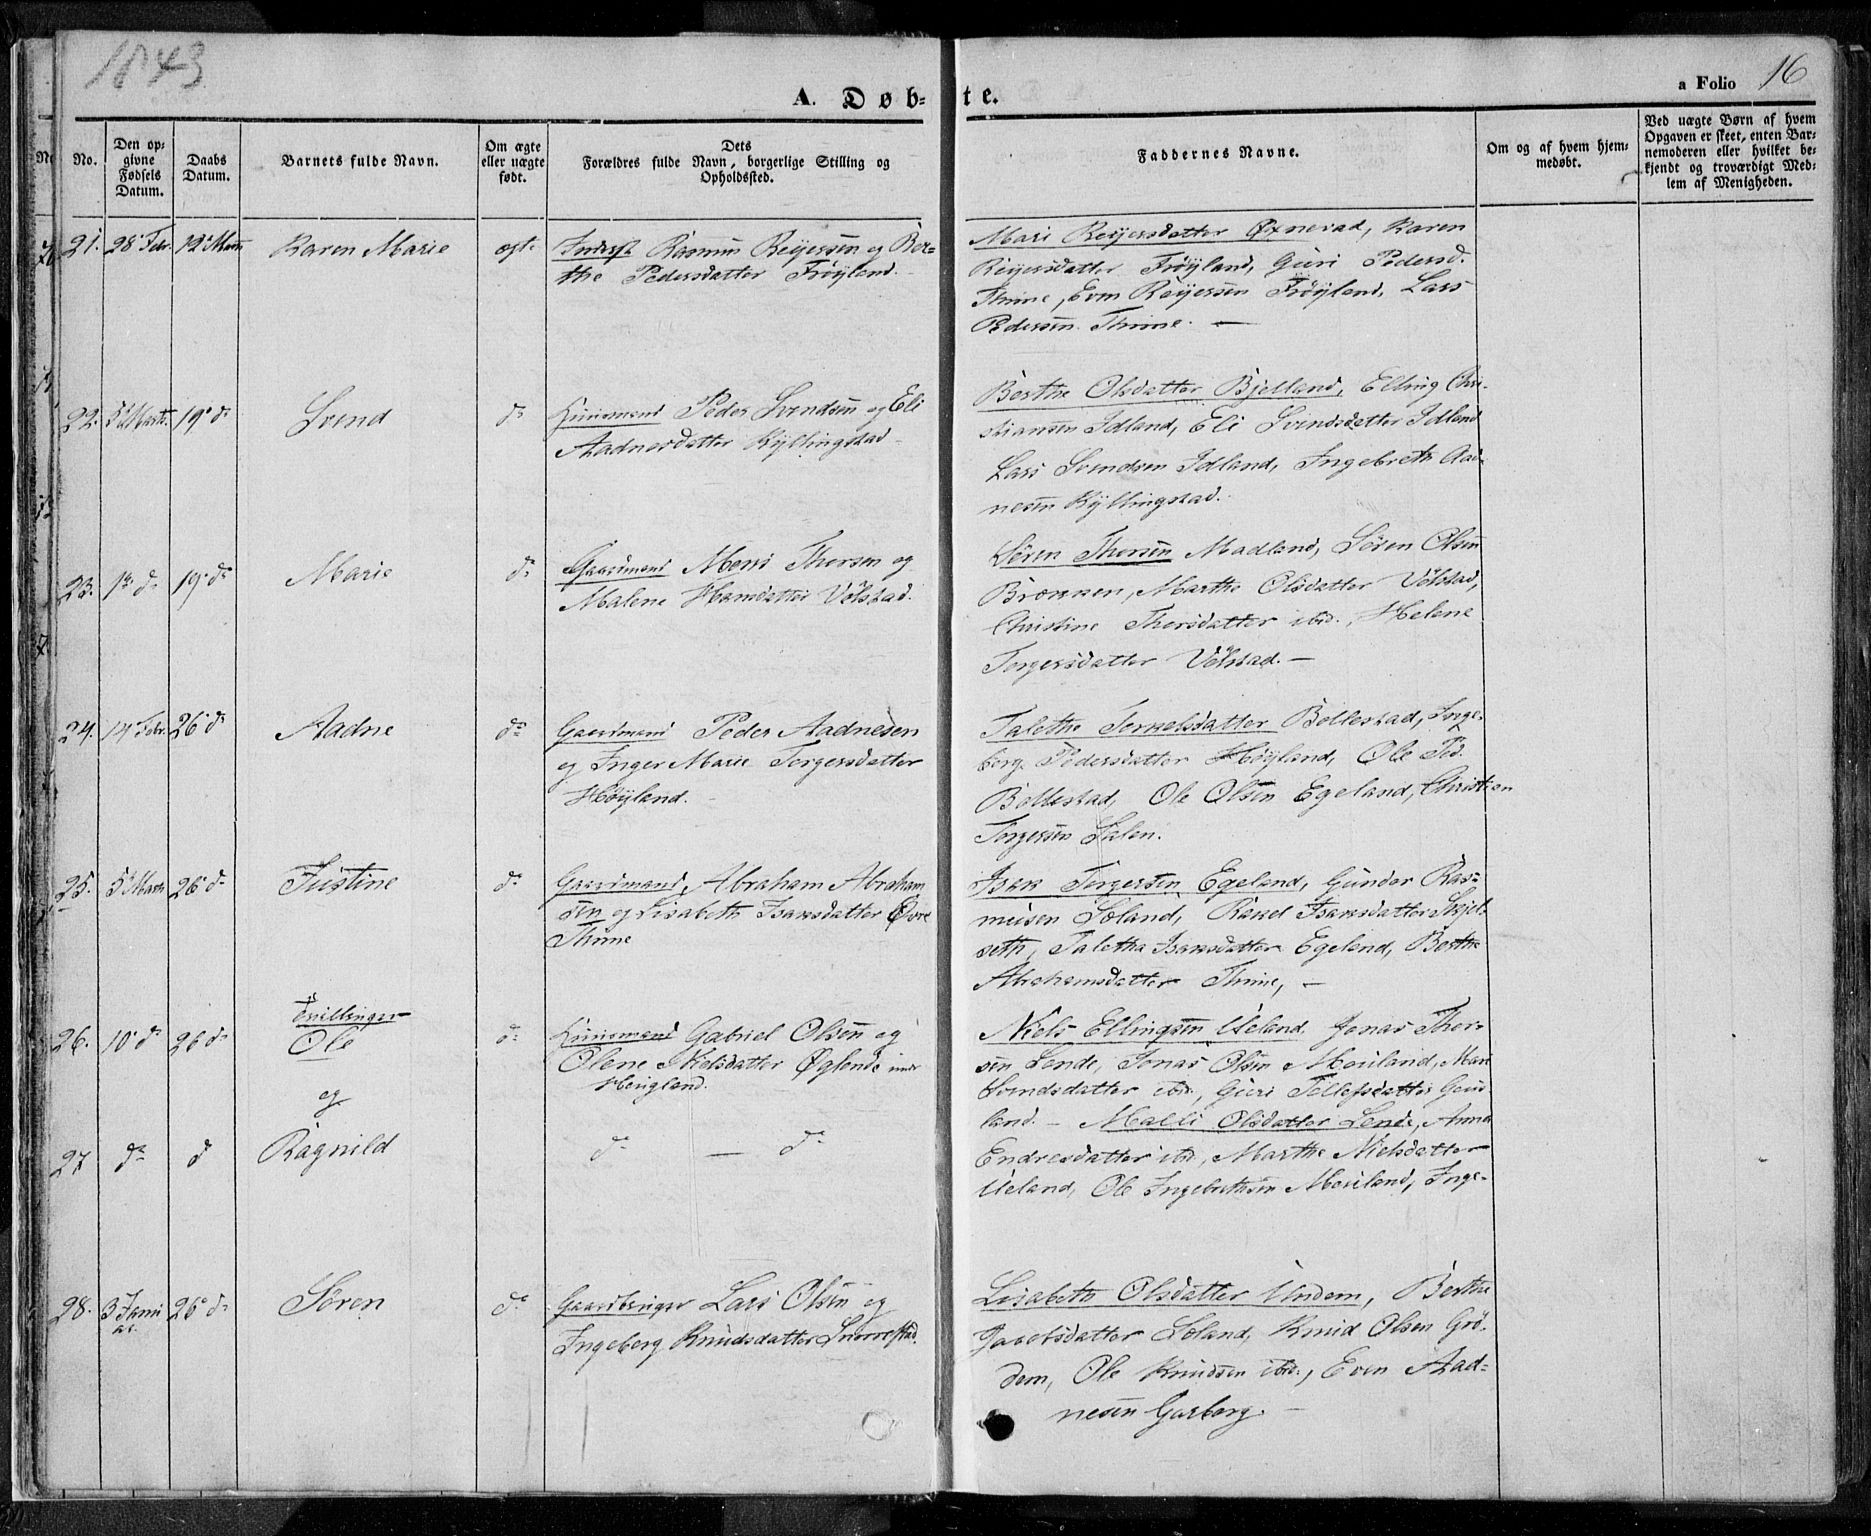 1843
A. Døb-
te.
a Folio 16
No.
Den op-
givne
Fødsels
Datum.
Daabs
Datum.
Barnets fulde Navn.
Om ægte
eller uægte
født.
Dets
Forældres fulde Navn, borgerlige Stilling og
Opholdssted.
Faddernes Navne.
Om og af hvem hjem-
medøbt.
Ved uægte Børn af hvem
Opgaven er skeet, enten Bar-
nemoderen eller hvilket be-
kjendt og troværdigt Med-
lem af Menigheden.
21. 28 Febr. 12 Karen Marie ægte Rasmus Reijersen og Ber-
the Pedersdatter Frøyland.
Mari Reijersdatter Øxnevad, Karen
Reijersdatter Frøyland, Guri Pedersd.
Thime, Even Reijersen Frøyland, Lars
Pedersen Thime. —
22. 5 Marts. 19 d° Svend d° Huusmand Peder Svendsen og Eli
Aadnesdatter Kyllingstad
Berthe Olsdatter Bjelland, Elling Chri-
stiansen Idland, Eli Svendsdatter Idland
Lars Svendsen Idland, Ingebreth Aad-
nesen Kyllingstad.
23. 1 d° 19 d° Marie d° Gaardmand Mons Thorsen og
Malene Hansdatter Vølstad.
Søren Thorsen Madland, Søren Olsen
Brønnen, Marthe Olsdatter Vølstad,
Christine Thorsdatter ibid., Helene
Torgersdatter Vølstad. —
24. 14 Febr. 26 d° Aadne d° Gaardmand Peder Aadnesen
og Inger Marie Torgersdatter
Høyland.
Talethe Terkelsdatter Bollestad, Inge-
borg Pedersdatter Høyland, Ole Ped.
Bollestad, Ole Olsen Egeland, Christian
Torgersen Salen.
25. 5 Marts 26 d° Justine d° Gaardmand Abraham Abraham
sen og Lisabeth Isaksdatter Øvre
Thime
Isak Torgersen Egeland, Gunder Ras-
musen Soland, Rakel Isaksdatter Skjel-
seth, Taletha Isaksdatter Egeland, Berthe
Abrahamsdatter Thime, —
Tvillinger
26. 10 d° 26 d° Ole d° Huusmand Gabriel Olsen og
Olene Nielsdatter Øglende under
Haugland.
og
Niels Ellingsen Ueland, Jonas Thor-
sen Lende, Jonas Olsen Mauland, Mari
Svendsdatter ibid., Guri Tollefsdatter
land. — Malli Olsdatter Lende, Anna
27 d° d Ragnild d° — d°
Endresdatter ibid, Marthe Nielsdatter
Ueland, Ole Ingebrethsen Mauland, Inge-
28. 3 Janu
ar. 26 d° Søren d° Gaardbruger Lars Olsen og
Ingeborg Knudsdatter Snorrestad.
Lisabeth Olsdatter Undem, Berthe
Jacobsdatter Soland, Knud Olsen Grø-
dem, Ole Knudsen ibid., Even Aad-
nesen Garborg. —